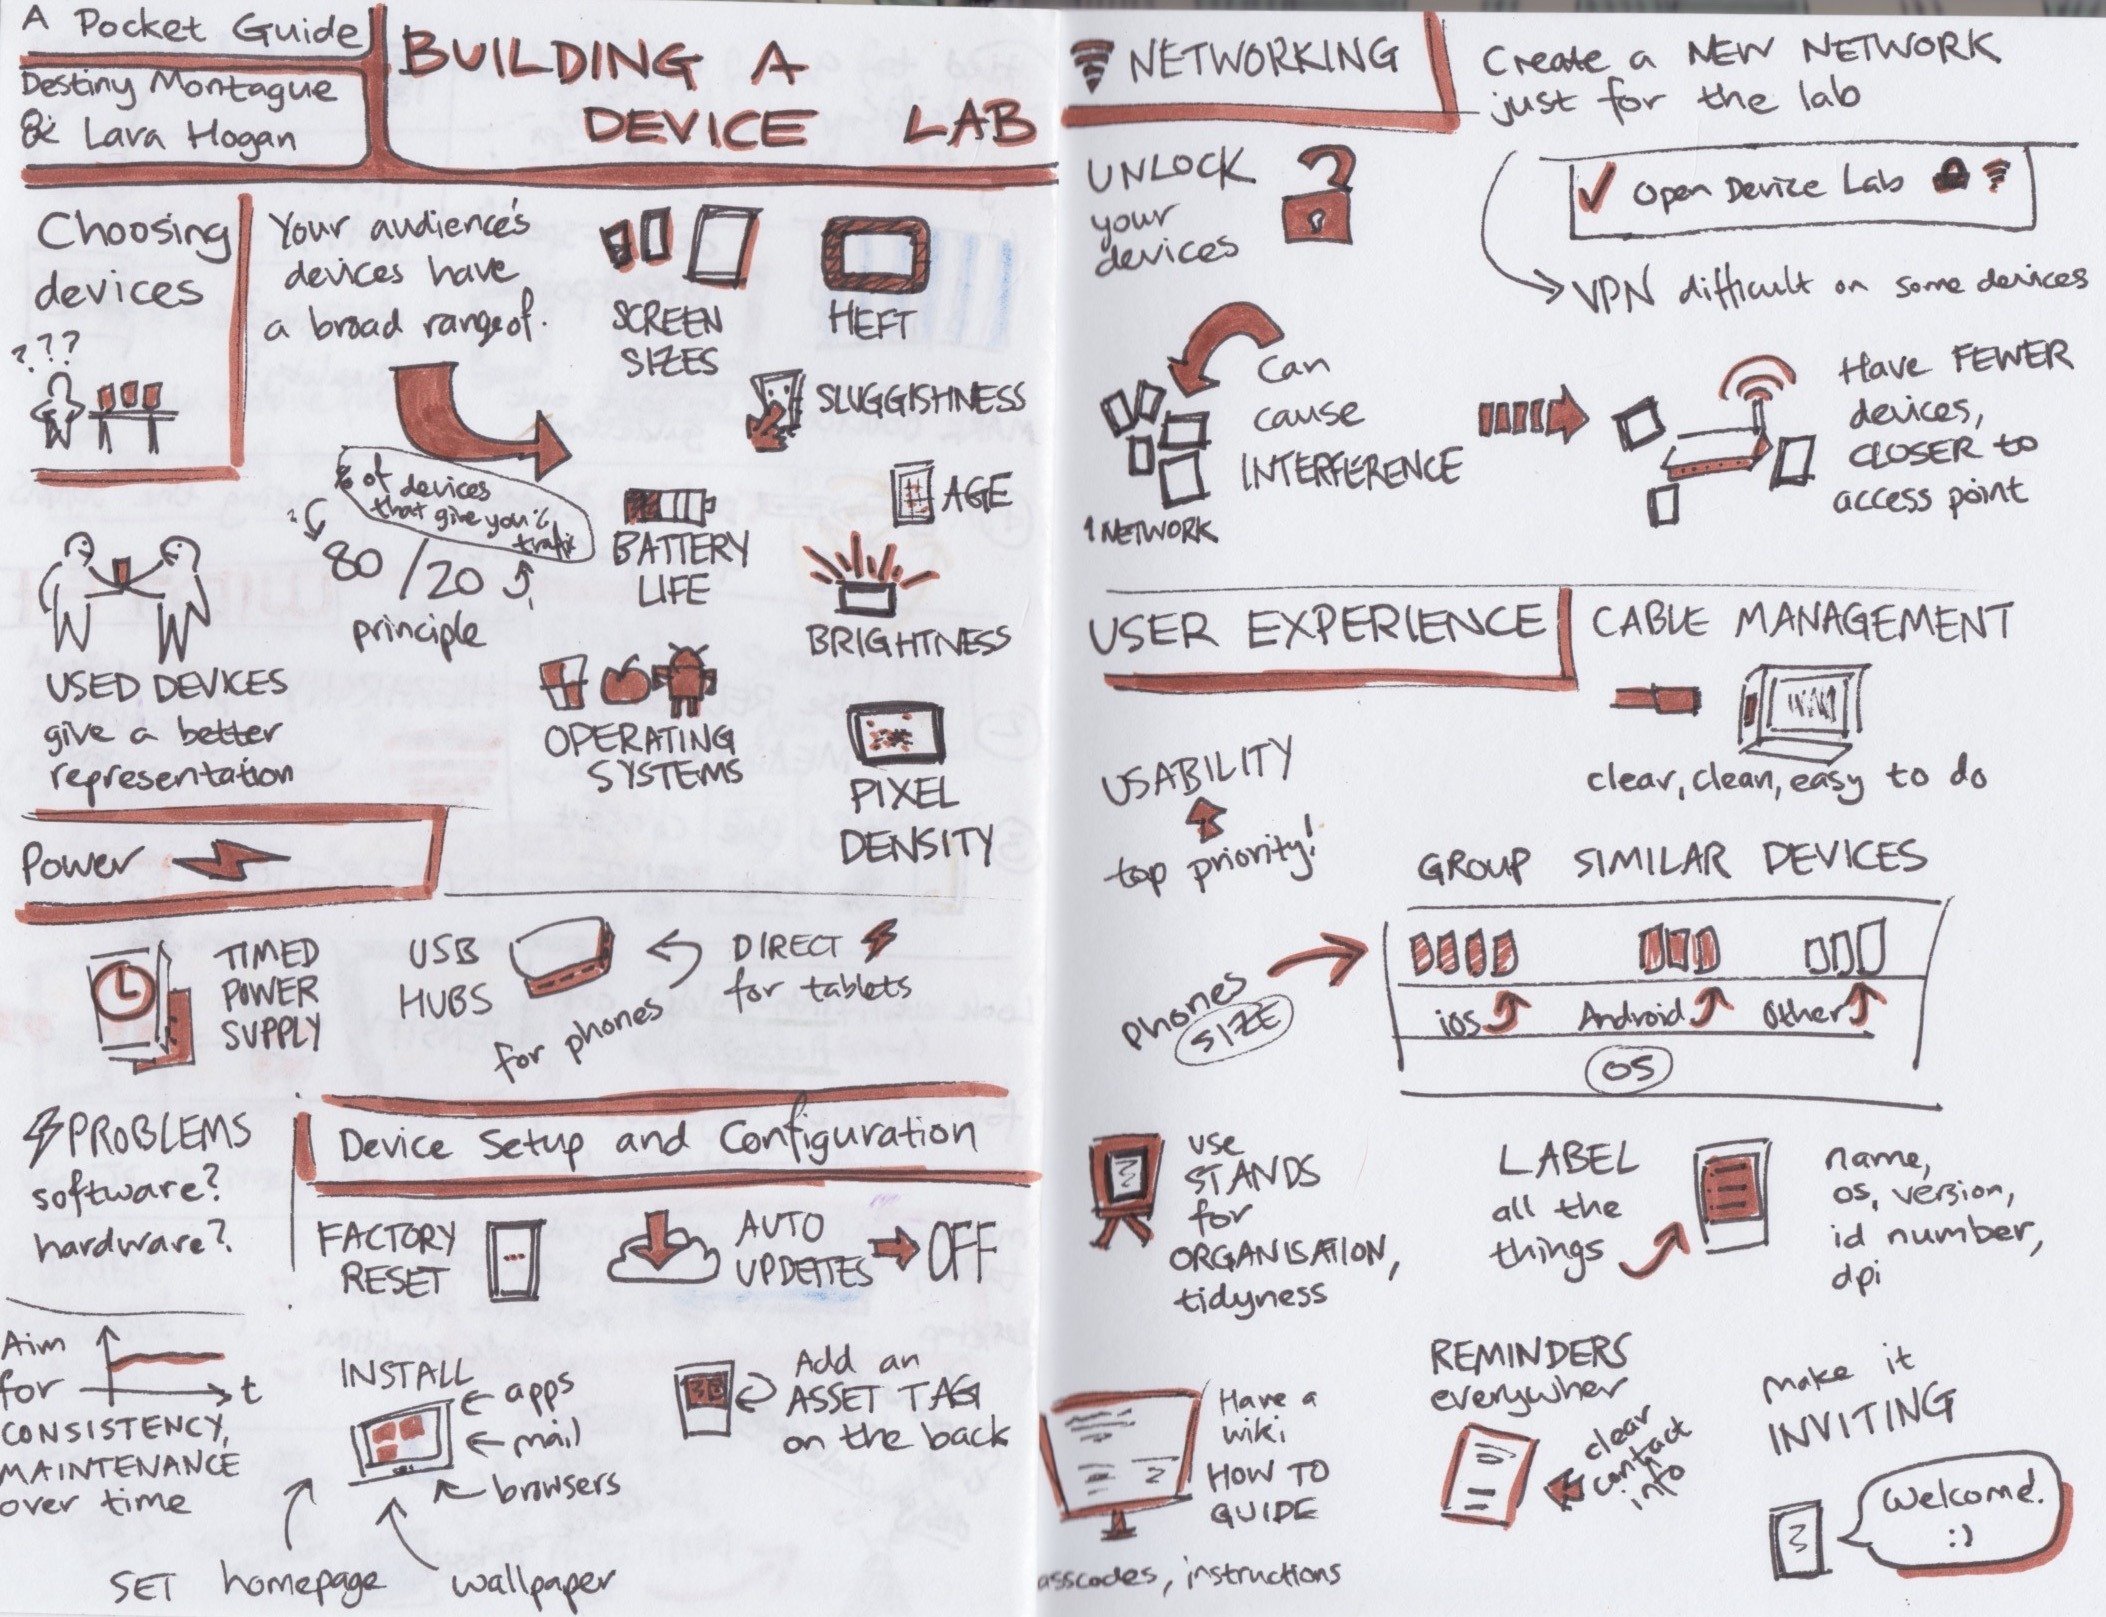 A Pocket Guide
Destiny Montague
& Lara Hogan
BUILDING A
DEVICE LAB
Choosing
devices
???
Your audience's
devices have
a broad range of.
SCREEN
SIZES
HEFT
SLUGGISHNESS
AGE
BATTERY
LIFE
BRIGHTNESS
OPERATING
SYSTEMS
PIXEL
DENSITY
% of devices
that give you %
80/20
principle
USED DEVICES
give a better
representation
Power
TIMED
POWER
SUPPLY
USB
HUBS
for phones
DIRECT
for tablets
PROBLEMS
software?
hardware?
Aim
for
t
CONSISTENCY,
MAINTENANCE
over time
Device Setup and Configuration
FACTORY
RESET
AUTO
UPDATES
OFF
INSTALL
apps
mail
browsers
SET homepage wallpaper
Add an
ASSET TAG
on the back
NETWORKING
Create a NEW NETWORK
just for the lab
UNLOCK
your
devices
Open Device Lab
VPN difficult on some devices
1 NETWORK
Can
cause
INTERFERENCE
Have FEWER
devices,
CLOSER to
access point
USER EXPERIENCE
CABLE MANAGEMENT
clear, clean, easy to do
USABILITY
top priority!
GROUP SIMILAR DEVICES
phones
SIZE
ios Android Other
OS
use
STANDS
for
ORGANISATION,
tidyness
LABEL
all the
things
name,
os, version,
id number,
dpi
Have a
wiki
HOW TO
GUIDE
asscodes, instructions
REMINDERS
everywher
clear
contact
info
make it
INVITING
Welcome.
:)